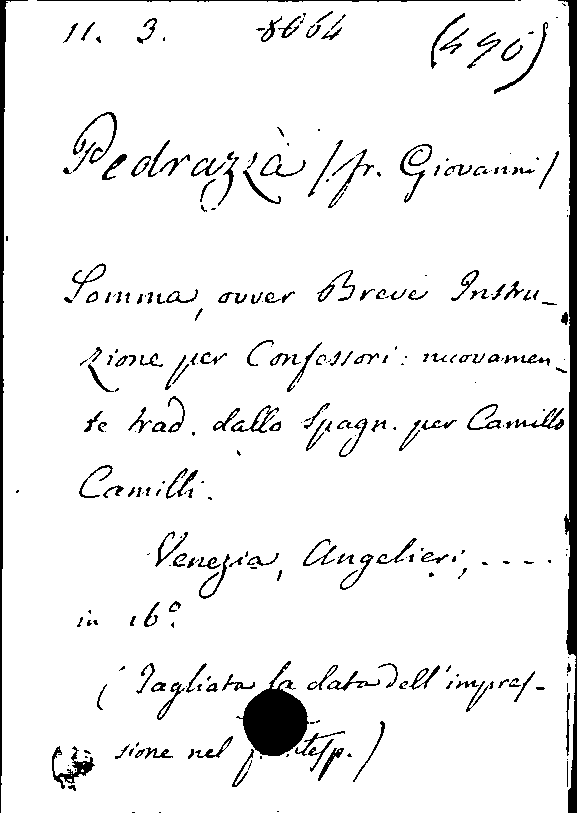 11. 3. 8064 (490)
Pedrazzà /fr. Giovanni/
Somma, ovver Breve Instru-
zione per Confessori: nuovamen-
te trad. dallo Spagn. per Camillo
Camilli.
Venezia, Angelieri, ....
in 16º.
(Tagliata la data dell'impres-
sione nel